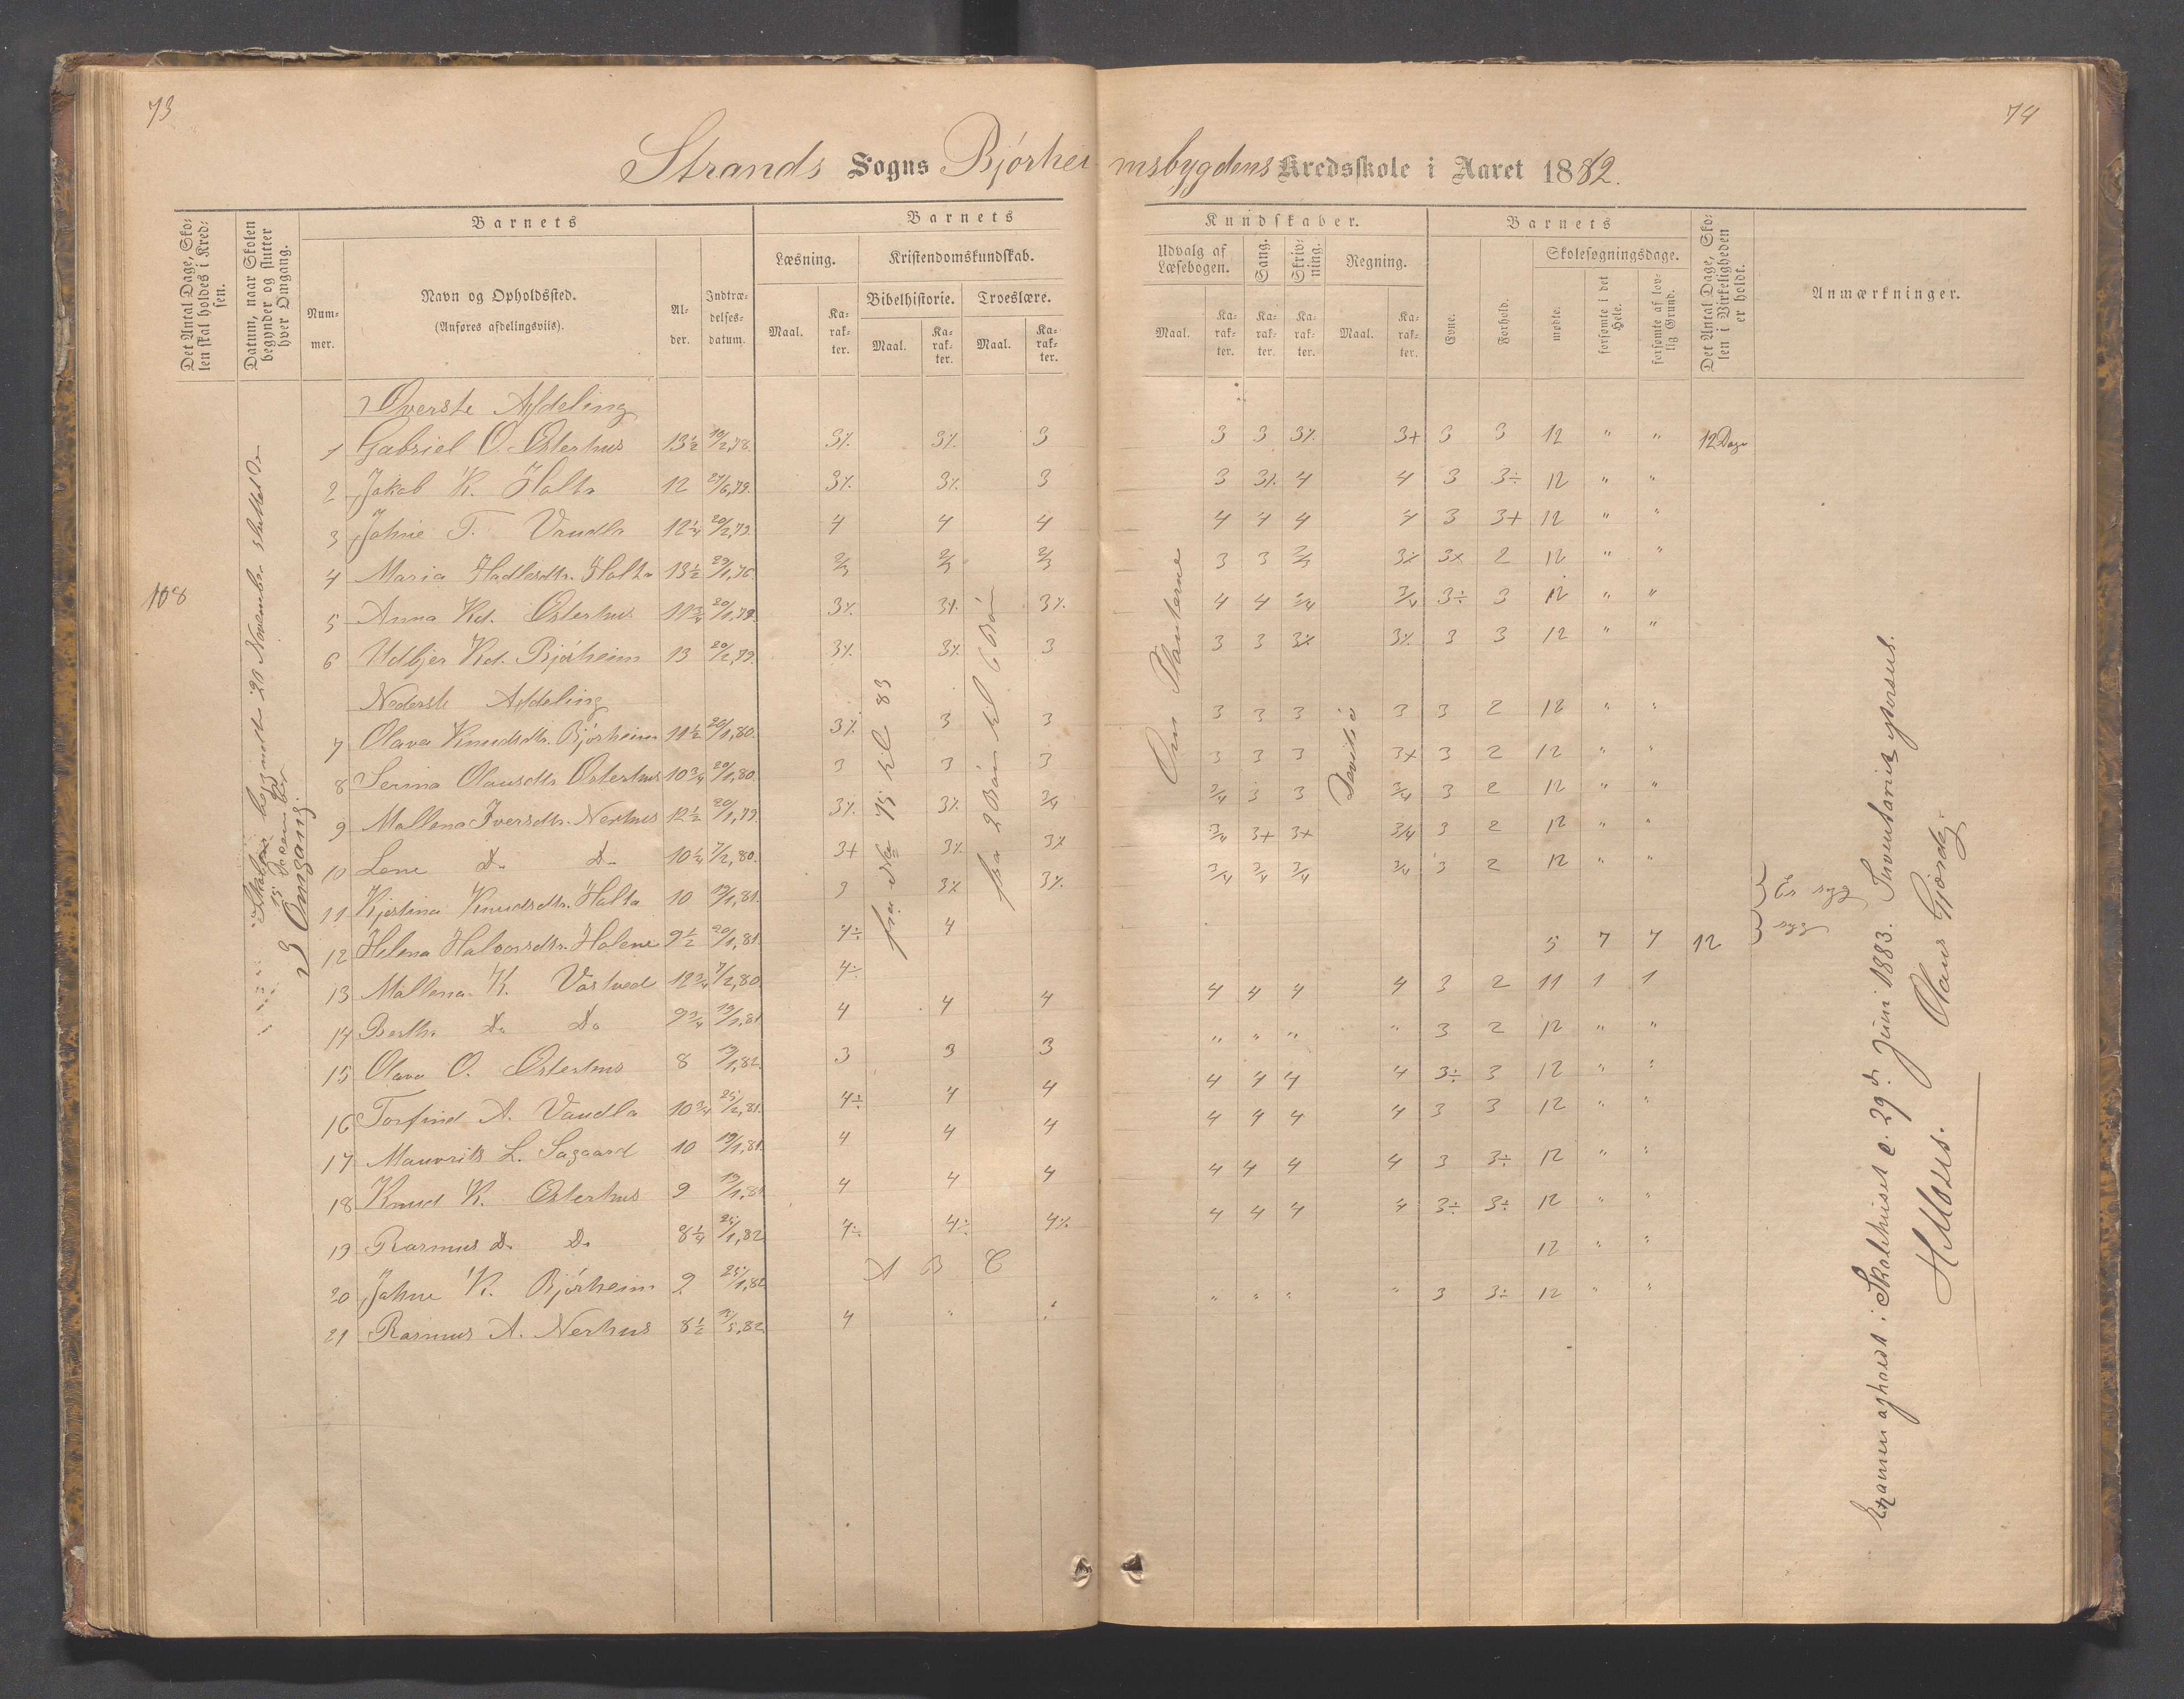 73
74
Strands Sogns Bjórheimsbygdens Kredsskole i Aaret 1882.
Det Antal Dage, Skolen skal holdes i Kredsen.
Datum, naar Skolen begynder og slutter hver Omgang.
Barnets
Nummer.
Navn og Opholdssted.
(Anføres afdelingsviis).
Alder.
Indtrædelsesdatum.
Barnets
Kundskaber.
Læsning.
Maal.
Karakter.
Kristendomskundskab.
Bibelhistorie.
Maal.
Karakter.
Troeslære.
Maal.
Karakter.
Udvalg af Læsebogen.
Maal.
Karakter.
Sang.
Karakter.
Skrivning.
Karakter.
Regning.
Maal.
Karakter.
Barnets
Evne.
Forhold.
Skolesøgningsdage.
mødte.
forsømte i det Hele.
forsømte af lovlig Grund.
Det Antal Dage, Skolen i Virkeligheden er holdt.
Anmærkninger.
108
Skolen begyndte 20 November sluttet den
15 December
3 Omgang.
Øverste Afdeling
1 Gabriel O. Østerhus 13½ 10/2,78. 3% 3% 3 3 3 3% 3+ 3 3 12 " " 12 Dage
2 Jakob K. Holta 12 27/6,79. 3% 3% 3 3 3% 4 4 3 3÷ 12 " "
3 Johne T. Vaudla 12¼ 20/2,79. 4 4 4 4 4 4 4 3 3+ 12 " "
4 Maria Hadlesdtr. Holta 13½ 29/1,76. 2/3 2/3 2/3 3 3 2/3 3% 3x 2 12 " "
5 Anna Kd. Østerhus 11¾ 20/1,79. 3% 3% 3% 4 4 3/4 3/4 3÷ 3 12 " "
6 Udbjer Kd. Bjórheim 13 20/2,79. 3% 3% 3 3 3 3% 3% 3 3 12 " "
Nederste Afdeling
7 Olava Knudsdtr. Bjórheim 11½ 20/1,80. 3% 3 3 3 3 3 3 3 2 12 " "
8 Serina Olausdtr. Østerhus 10¾ 20/1,80. 3 3 3 3 3 3 3+ 3 2 12 " "
9 Mallena Iversdtr. Nerhus 12½ 20/1,79. 3% 3% 3/4 3/4 3 3 3/4 3 2 12 " "
10 Lene Do Do 10¼ 7/2,80. 3+ 3% 3% 3/4 3+ 3+ 3/4 3 2 12 " "
11 Kjistina Knudsdtr. Holta 10 19/1,81. 3 3% 3% 3/4 3/4 3/4 3/4 3 2 12 " "
12 Helena Halvorsdtr. Holene 9½ 20/1,81. 4÷ 4 5 7 7 12
13 Mallena K. Vostved 12¾ 7/2,80 4÷ 4 4 4 4 3 2 11 1 1
14 Berthe Do Do 9¾ 19/1,81 4 4 4 " " " " 3 2 12 " "
15 Olava O. Østerhus 8 19/1,82. 3 3 3 4 4 4 4 3÷ 3 12 " "
16 Torfind A. Vaudla 10¾ 25/2,81. 4÷ 4 4 4 4 4 4 3 3 12 " "
17 Mauvrits L. Sagaard 10 19/1,81. 4 4 4 4 4 4 4 3 3÷ 12 " "
18 Knud K. Østerhus 9 19/1,81 4 4 4 4 4 4 4 3÷ 3÷ 12 " "
19 Rasmus Do Do 8¼ 25/1,82 4÷ 4÷ 4% 12 " "
20 Johne K. Bjórheim 9 25/1,82 A B C " " " " 3 3÷ 12 " "
21 Rasmus A. Nerhus 8½ 82. 4 " "
til 83
fra 2 Bón til 6 Bón
Om Planterne
Er syg
syg
Examen afholdt i Skolehuset d. 29de Juni 1883. Inventariet
H. Moss. Olaus Gjorde